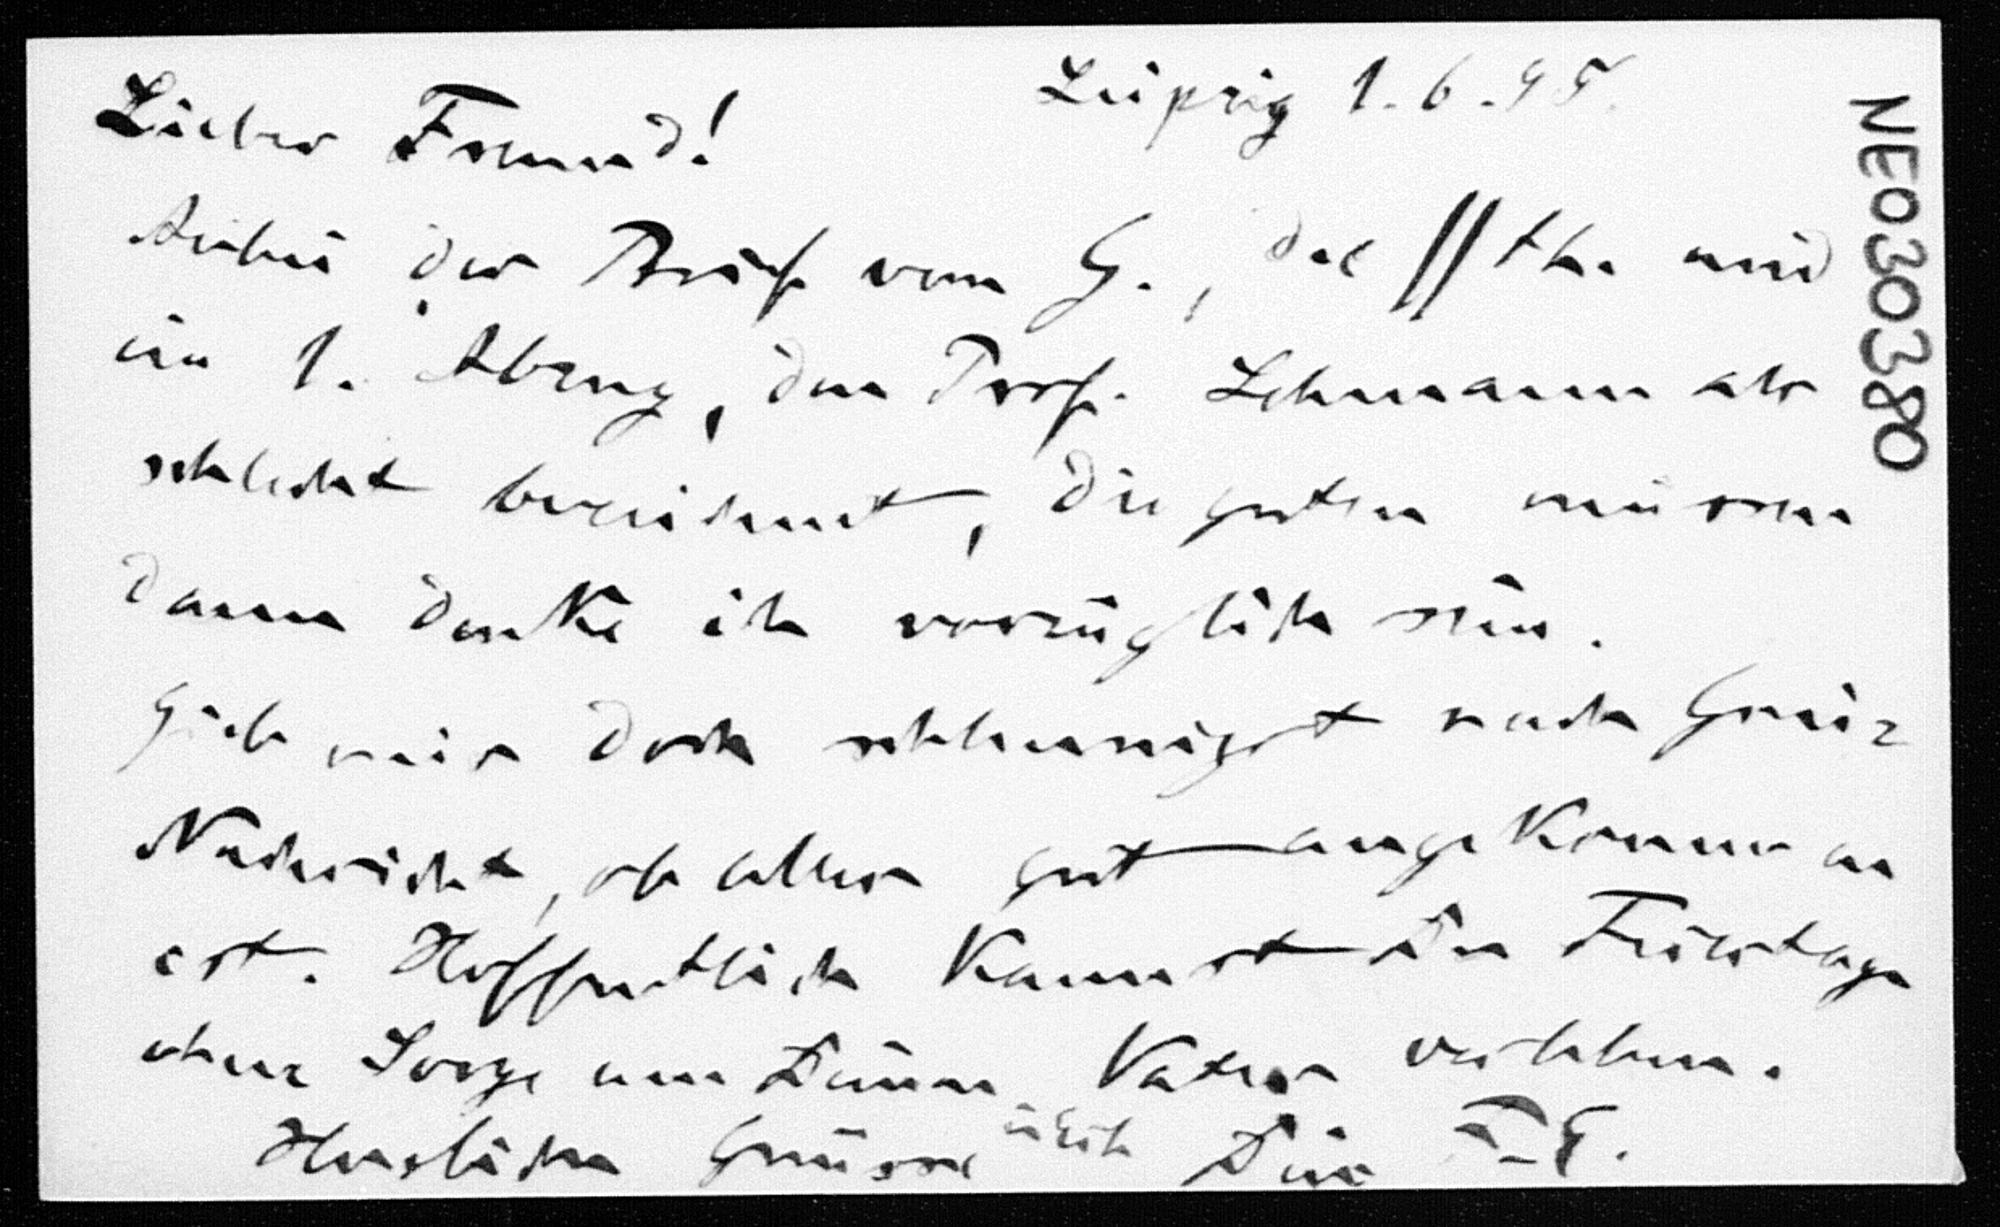 Leipzig 1.6.95.
Lieber Freund!
Anbei der Brief vom G., das ffth. und
ein 1. Abzug, den Prof. Lehmann als
schlecht bezeichnet, die guten müssen
dann denke ich vorzüglich sein.
Gieb mir doch schleunigst nach Greiz
Nachricht, ob alles gut angekommen
ist. Hoffentlich kannst Du Feiertage
ohne Sorge um Deinen Vater verleben.
Herzlichen Grüsse Dein
NE030380